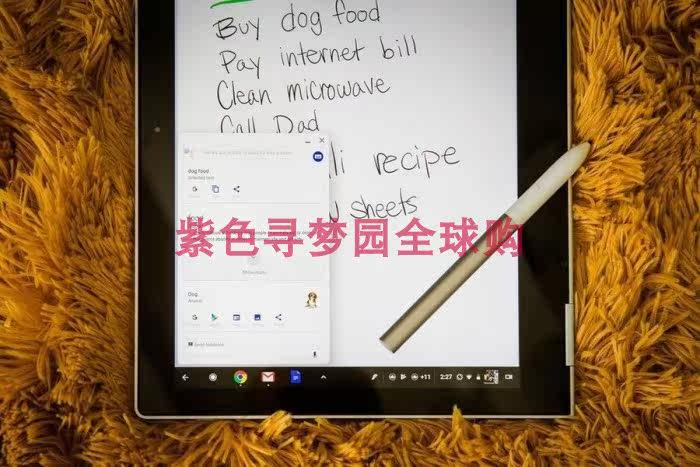 Buy dog food
Pay internet bill
Clean microwave
Call Dad
recipe
sheets
dog food
Selected text
紫色寻梦园全球购
Dog
Animal
Send feedback
+11
2:27